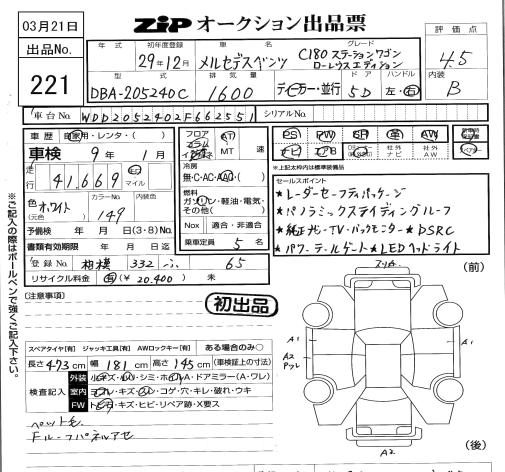 03月21日
ZiP オークション出品票
出品No.
221
年式 初年度登録 車名 グレード
29年12月 メルセデスベンツ C180ステーションワゴン
ローレウスエディション
型式 排気量 ドア ハンドル
DBA-205240C 1600 ディーラー・並行 5D 左・右
評価点
4.5
内装
B
車台No. WDD2052402F662551 シリアルNo.
車歴 自家用・レンタ・( )
車検 9年 1月
走行 41,669 km マイル
色 ホワイト
(元色)
カラーNo. 149
内装色
予備検 年 月 日(3・8)No.
書類有効期限 年 月 日迄
登録No. 相模 332 ふ 65
リサイクル料金 有(¥ 20,400 ) 未
フロア
コラム
インパネ
AT
MT 速
冷房
無・C・AC・AAC・( )
燃料
ガソリン・軽油・電気・
その他( )
Nox 適合・非適合
乗車定員 5 名
PS PW SR 革 AW
ナビ エアB 社外ナビ 社外AW
*上記太枠内は標準装備品
セールスポイント
★レーダーセーフティパッケージ
★パノラミックスライディングルーフ
★純正ナビ・TV・バックモニター★DSRC
★パワーテールゲート★LEDヘッドライト
※ご記入の際はボールペンで強くご記入下さい。
(注意事項)
初出品
スペアタイヤ[有] ジャッキ工具[有] AWロックキー[有] ある場合のみ○
長さ 473 cm 幅 181 cm 高さ 145 cm (車検証上の寸法)
検査記入
外装 小キズ・凹・シミ・ホイルA・ドアミラー(A・ワレ)
室内 ヨゴレ・キズ・スレ・コゲ・穴・キレ・破れ・ウキ
FW トビ・キズ・ヒビ・リペア跡・X要ス
ペット毛
Fルーフパネルアセ
スリキズ
(前)
A1
A2
A1
A2
(後)